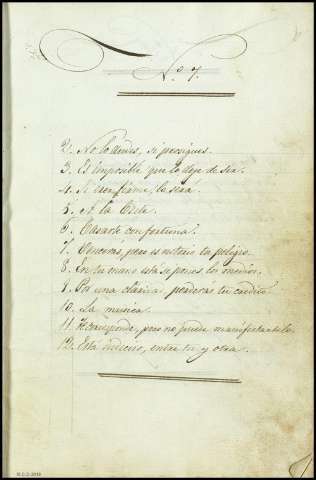 No. 7.
2. No lo dudes, si persigues.
3. Es imposible que lo deje de ser.
4. Si eres firme, la será.
5. A la Corte.
6. Casarte con fortuna.
7. Vencerás, pero es notorio tu peligro.
8. En tu mano está si pones los medios.
9. Por una clarina, perderás tu caudal.
10. La musica.
11. Te corresponde, pero no puede manifestartelo.
12. Está indeciso, entre tu y otra.